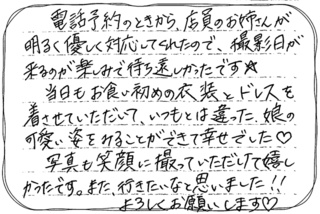 電話予約のときから、店員のお姉さんが
明るく優しく対応してくれたので、撮影日が
来るのが楽しみで待ち遠しかったです☆
当日もお食い初めの衣装とドレスを
着させていただいて、いつもとは違った、娘の
可愛い姿をみることができて幸せでした♡
写真も笑顔に撮っていただけて嬉し
かったです。また、行きたいなと思いました!!
よろしくお願いします♡